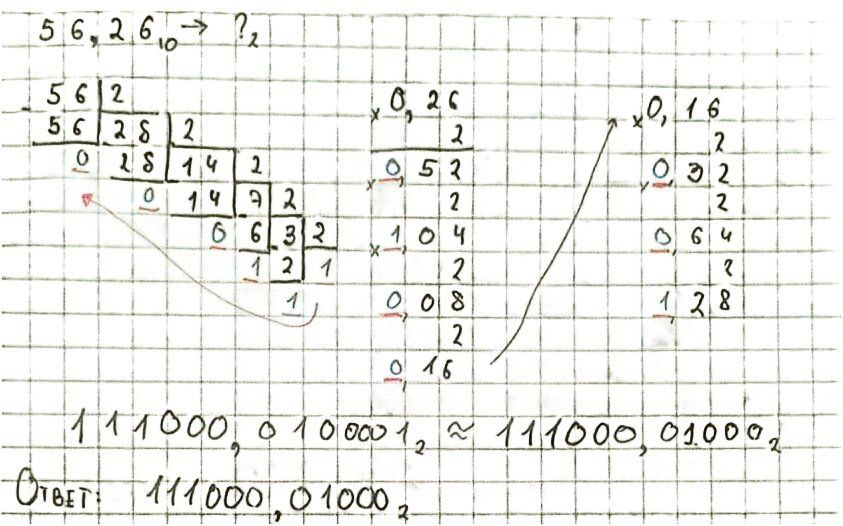 56,26₁₀ → ?₂
- 56 | 2
56 | 28 | 2
0 28 | 14 | 2
0 14 | 7 | 2
0 6 | 3 | 2
1 2 | 1
1
× 0,26
2
× 0,52
2
× 1,04
2
0,08
2
0,16
× 0,16
2
× 0,32
2
0,64
2
1,28
111000,0100001₂ ≈ 111000,01000₂
Ответ: 111000,01000₂